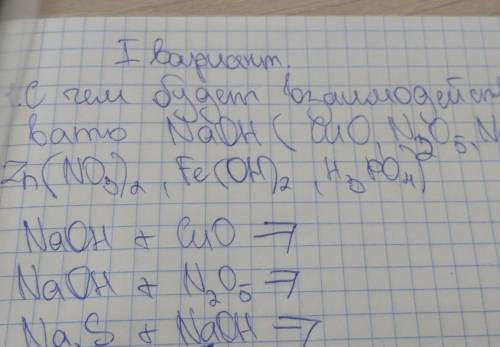 I вариант.
1. С чем будет взаимодейст
вать NaOH ( CuO, N₂O₅, N
Zn(NO₃)₂, Fe(OH)₂, H₃PO₄)
NaOH + CuO →
NaOH + N₂O₅ →
Na₂S + NaOH →